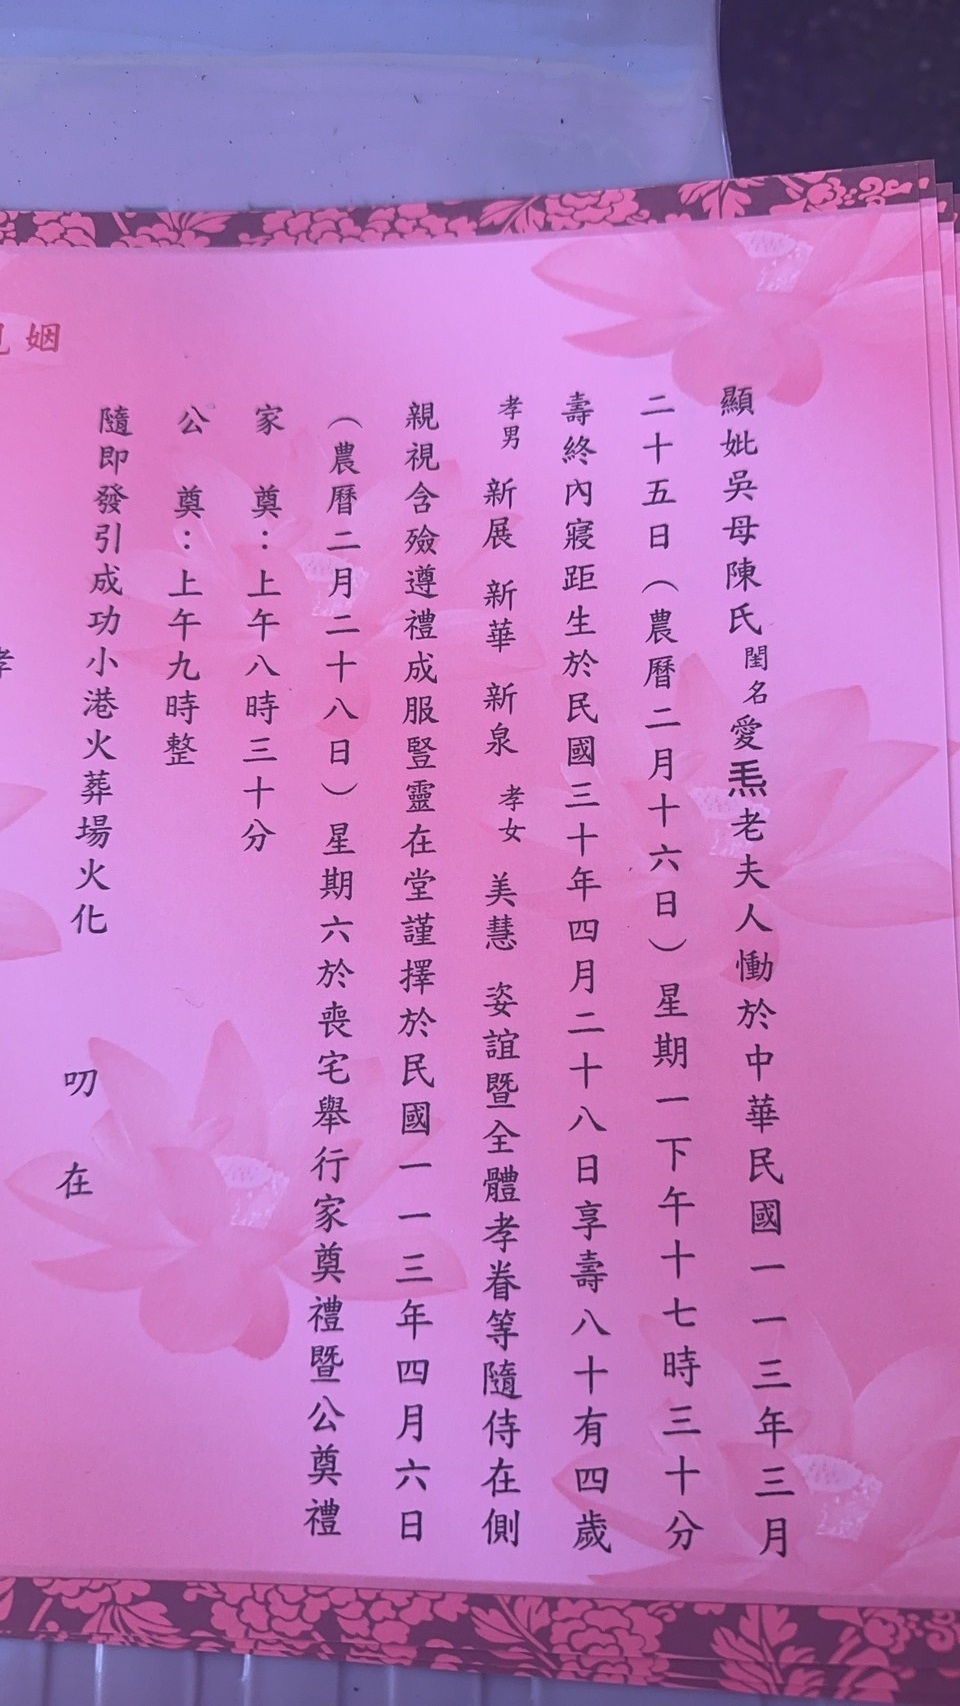 顯妣吳母陳氏閨名愛𤆬老夫人慟於中華民國一一三年三月
二十五日（農曆二月十六日）星期一下午十七時三十分
壽終內寢距生於民國三十年四月二十八日享壽八十有四歲
孝男 新展 新華 新泉 孝女 美慧 姿誼暨全體孝眷等隨侍在側
親視含殮遵禮成服豎靈在堂謹擇於民國一一三年四月六日
（農曆二月二十八日）星期六於喪宅舉行家奠禮暨公奠禮
家 奠：上午八時三十分
公 奠：上午九時整
隨即發引成功小港火葬場火化
叨在
姻